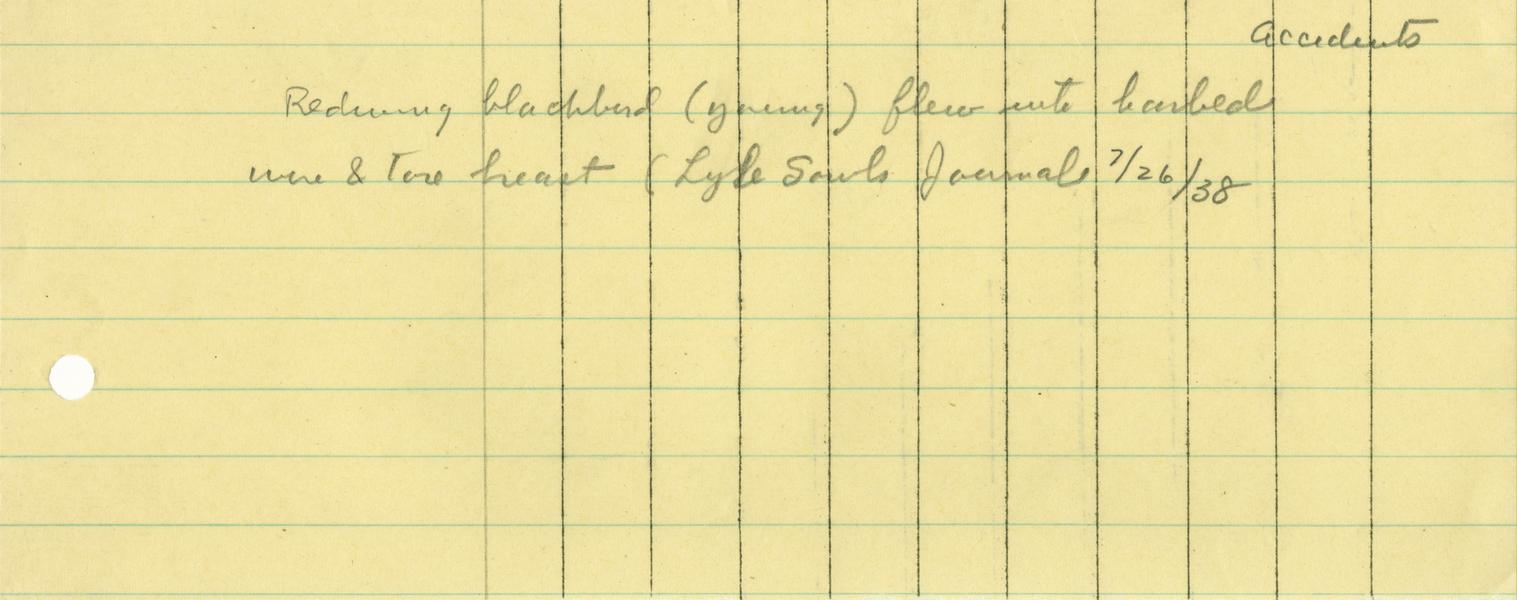 Accidents
Redwing blackbird (young) flew into barbed
wire & tore heart (Lyle Sowls Journal 7/26/38